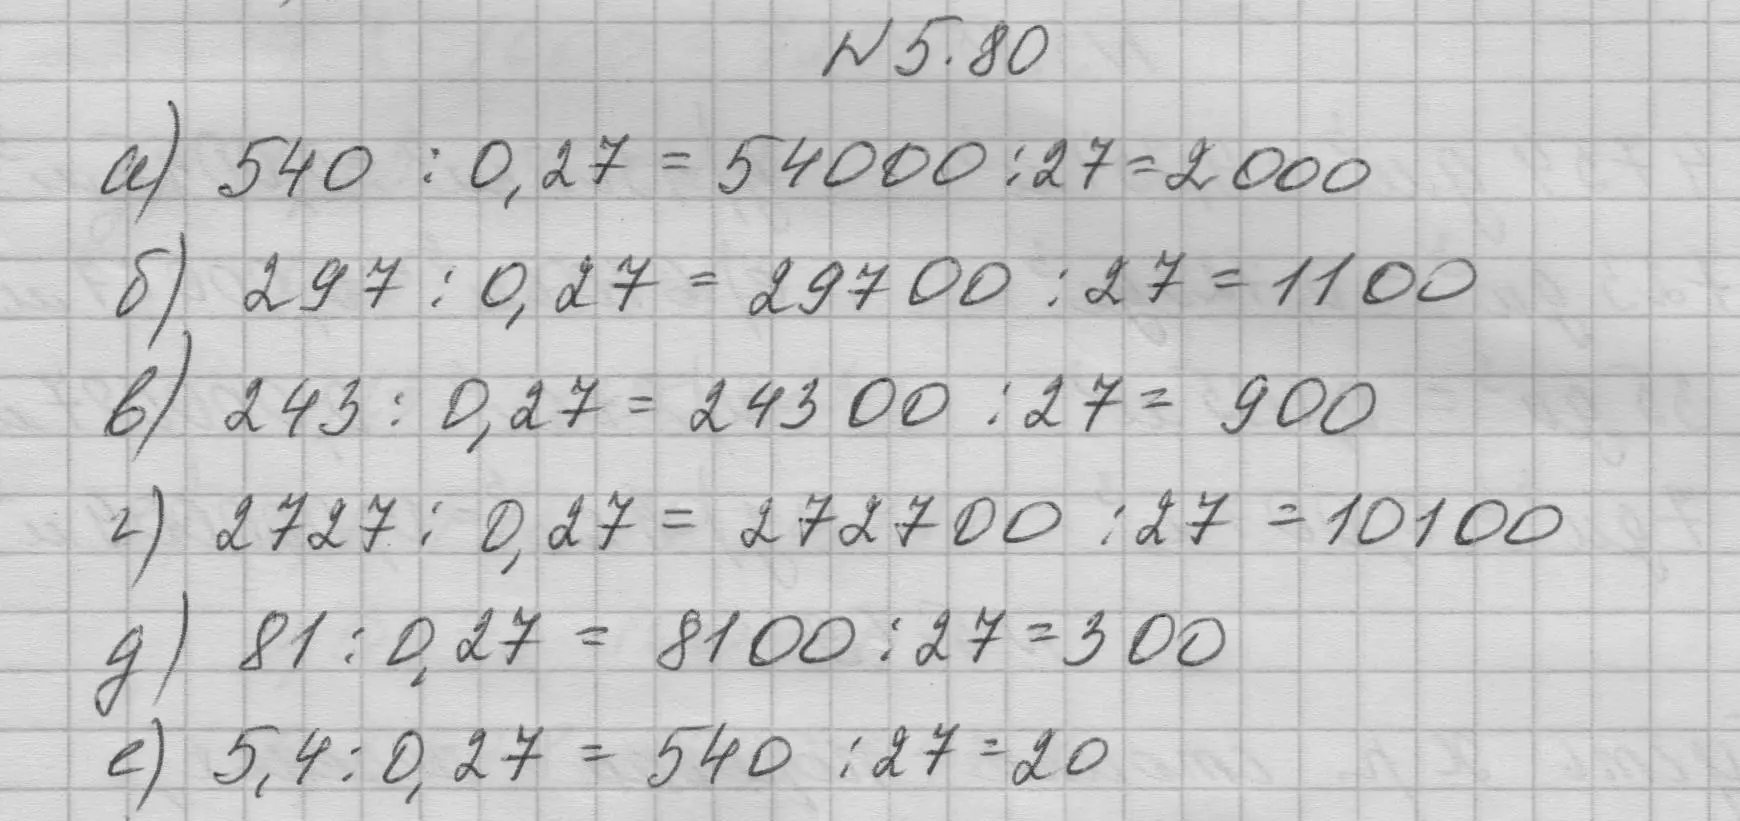 № 5.80
а) 540 : 0,27 = 54000 : 27 = 2000
б) 297 : 0,27 = 29700 : 27 = 1100
в) 243 : 0,27 = 24300 : 27 = 900
г) 2727 : 0,27 = 272700 : 27 = 10100
д) 81 : 0,27 = 8100 : 27 = 300
е) 5,4 : 0,27 = 540 : 27 = 20